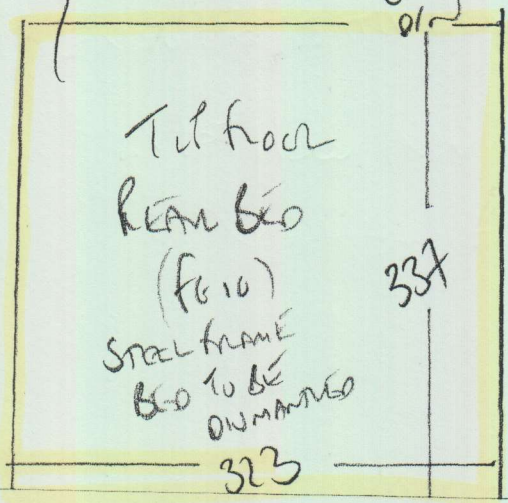 1st floor
REAR BED
(FG10)
STEEL FRAME
BED TO BE
DISMANTLED
337
323